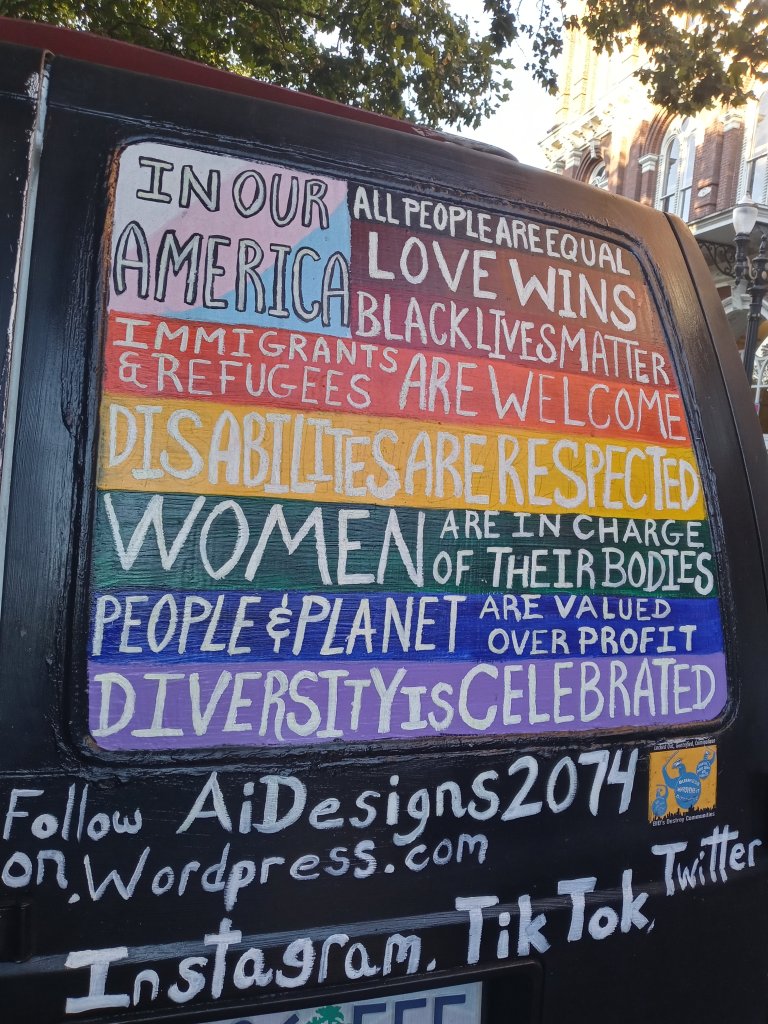 IN OUR
AMERICA
ALL PEOPLE ARE EQUAL
LOVE WINS
BLACK LIVES MATTER
IMMIGRANTS
& REFUGEES ARE WELCOME
DISABILITES ARE RESPECTED
WOMEN ARE IN CHARGE
OF THEIR BODIES
PEOPLE & PLANET ARE VALUED
OVER PROFIT
DIVERSITY IS CELEBRATED
Follow AiDesigns2074
on .Wordpress.com
Instagram. TikTok, Twitter
BID's Destroy Communities